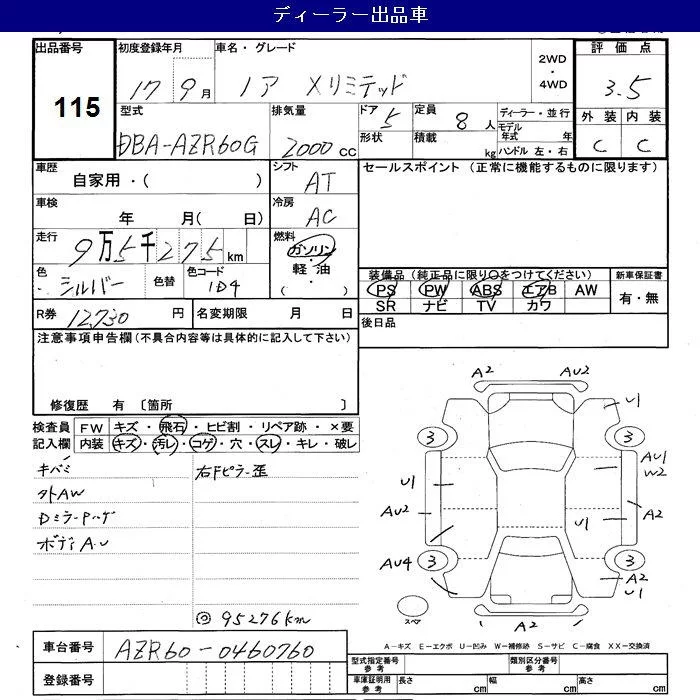 ディーラー出品車
出品番号 初度登録年月 車名・グレード 2WD・4WD 評価点
115 17 9月 ノア Xリミテッド 3.5
型式 排気量 ドア 5 定員 8人 ディーラー・並行 外装 内装
DBA-AZR60G 2000cc 形状 積載 kg モデル年式 年 C C
ハンドル 左・右
車歴 シフト セールスポイント (正常に機能するものに限ります)
自家用・( ) AT
車検 冷房
年 月( 日) AC
走行 燃料
9万5千275km ガソリン・軽油
色 色替 色コード ( )
シルバー 1D4
装備品 (純正品に限り○をつけてください) 新車保証書
PS PW ABS エアB AW 有・無
SR ナビ TV カワ
R券 12,730円 名変期限 月 日 後日品
注意事項申告欄 (不具合内容等は具体的に記入して下さい)
修復歴 有 〔箇所 〕
検査員 FW キズ・飛石・ヒビ割・リペア跡・×要
記入欄 内装 キズ・汚レ・コゲ・穴・スレ・キレ・破レ
キバミ 右Fピラー歪
外AW
DミラーPハゲ
ボディA.U
◎95276km
A2 AU2
U1
3 3
AU1
W2
U1
AU2 U1 A2
AU4 3 3
A2
U1
スペ A2
A-キズ E-エクボ U-凹み W-補修跡 S-サビ C-腐食 XX-交換済
車台番号 AZR60-0460760
登録番号
型式指定番号 参考 類別区分番号 参考
車庫証明用 参考 長さ cm 幅 cm 高さ cm